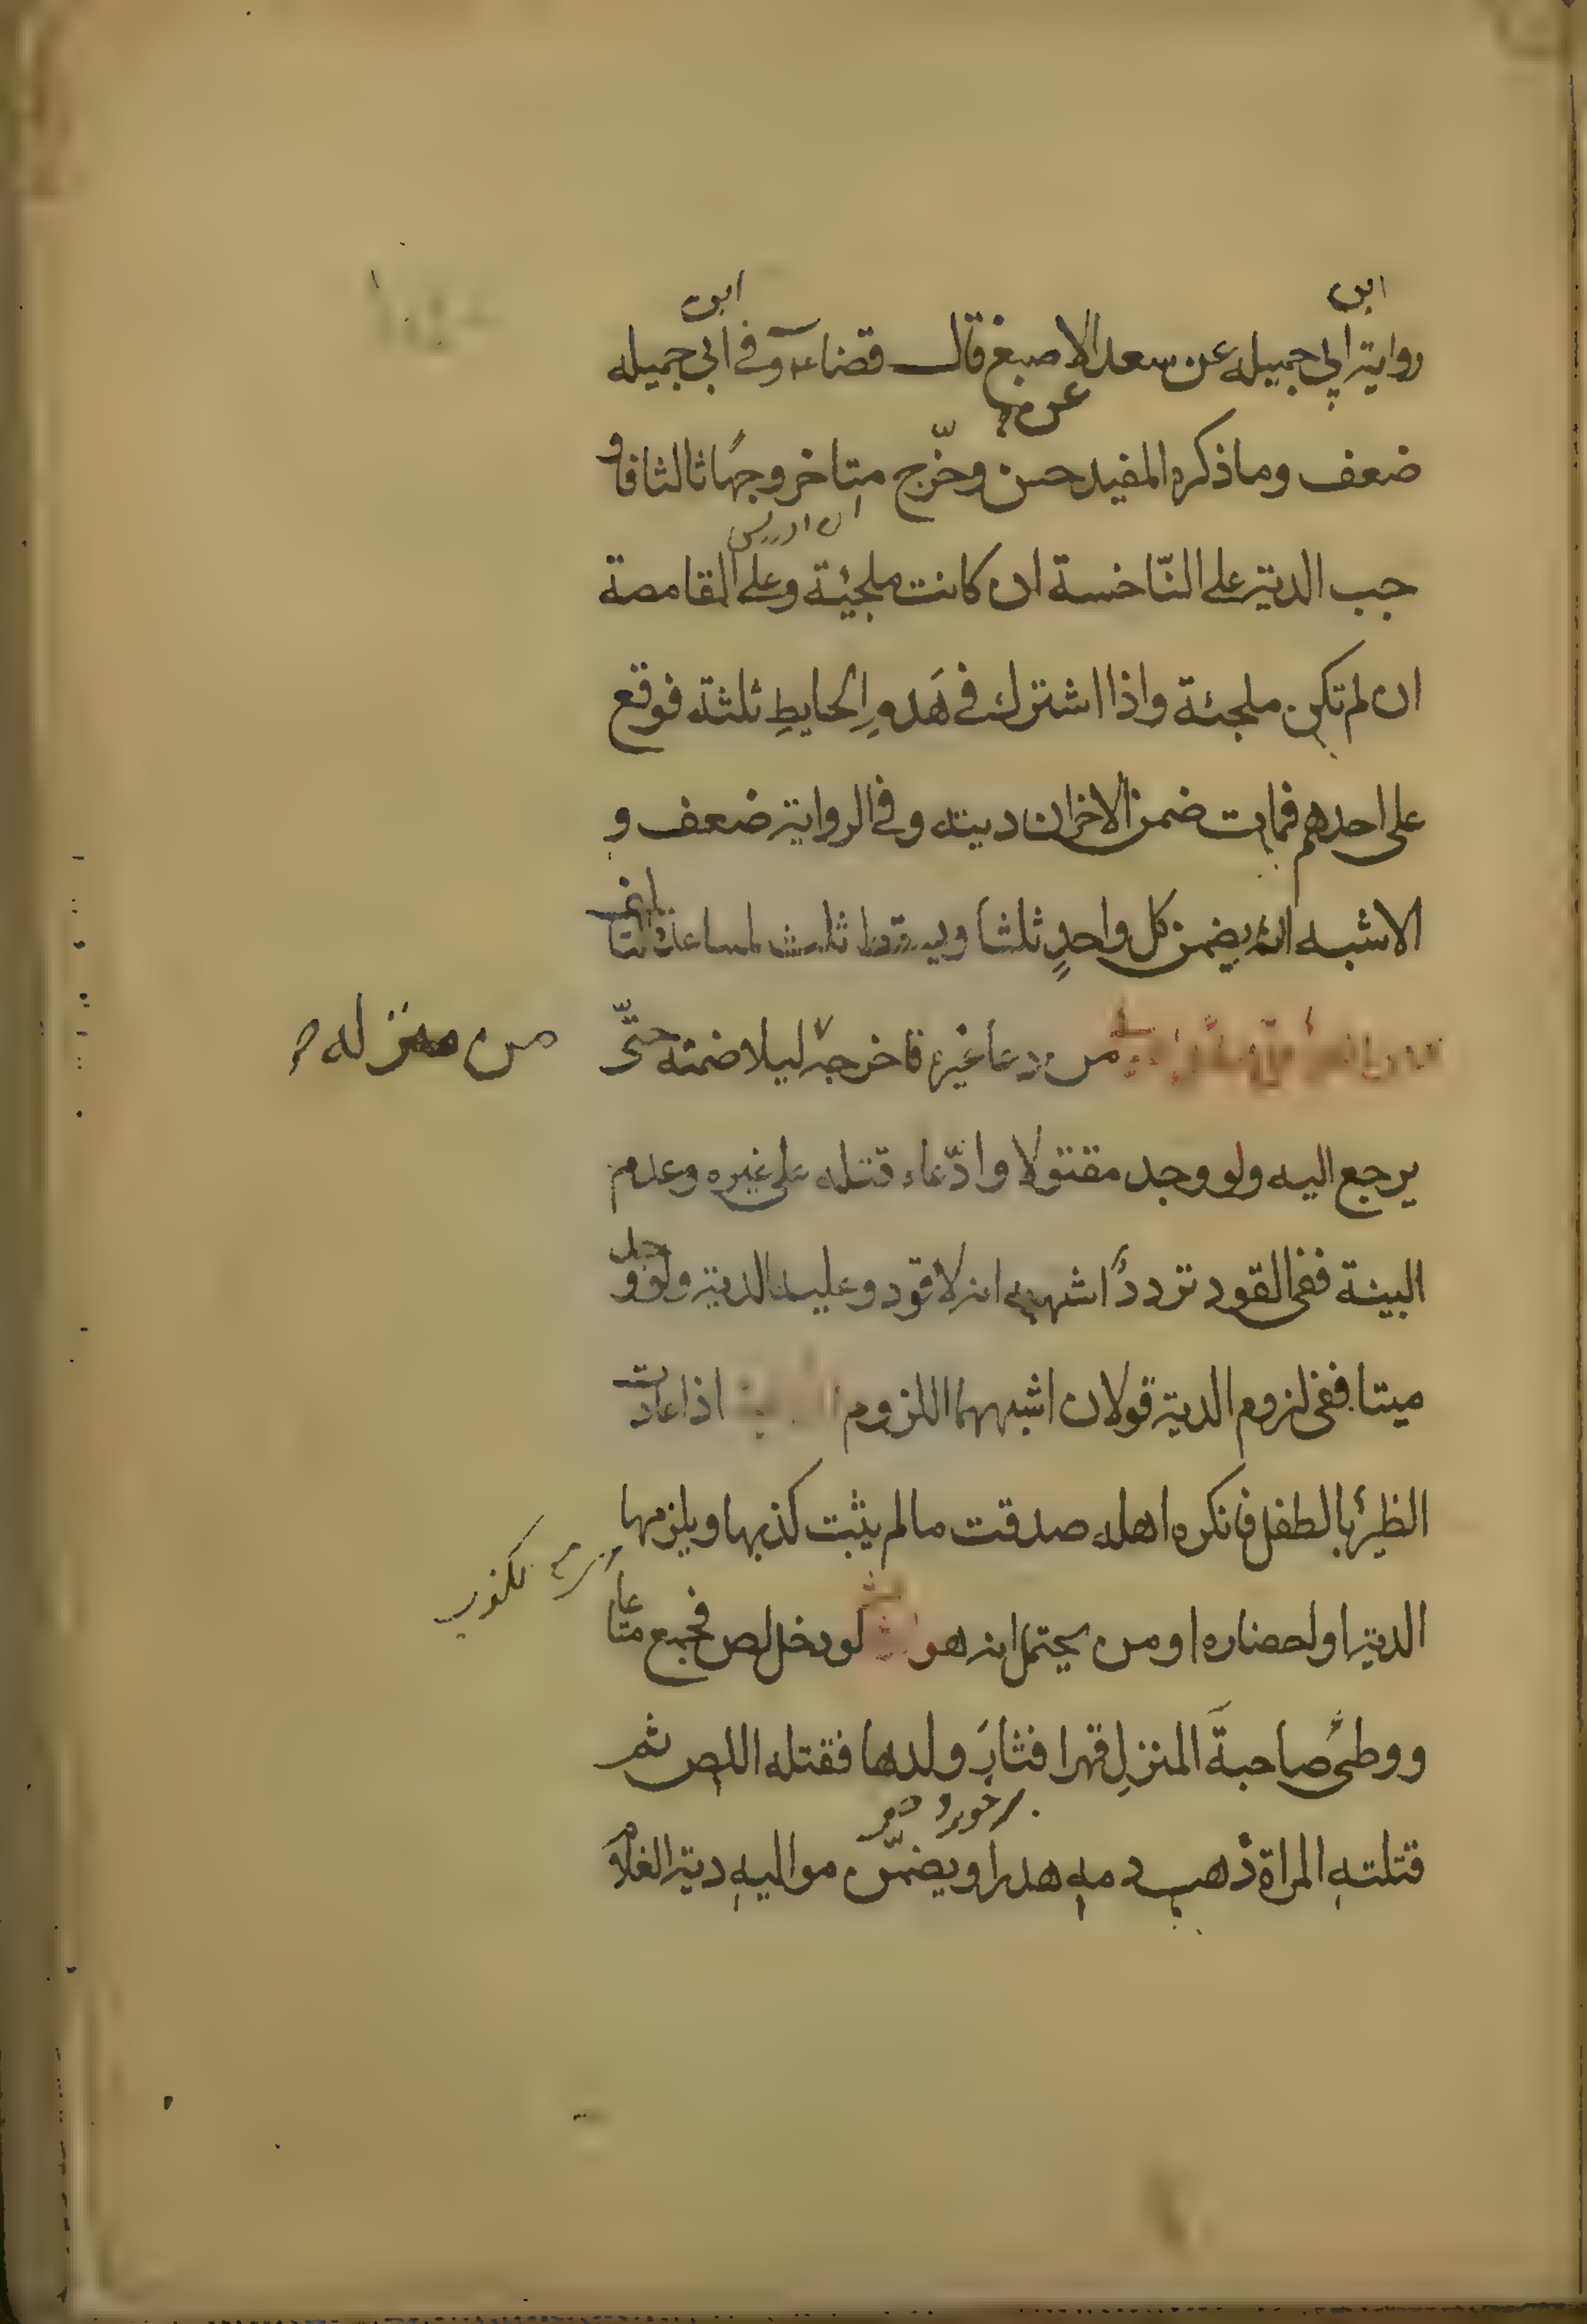 ابن
ابن
رواية ابي جميله عن سعد الاصبغ قال قضاء وفي ابي جميله
عن
ضعف وما ذكره المفيد حسن وخرّج متاخر وجهًا ثالثا فاو
جب الدية على النّاخسة ان كانت ملجئة وعلى القامصة
ان لم تكن ملجئة واذا اشترك في هَدمِ الحايطِ ثلثة فوقع
على احدهم فمات ضمن الاخران ديته وفي الرواية ضعف و
الاشبه انه يضمن كل واحدٍ ثلثا ويسقط ثلث لمساعدة التا
من دعا غيره فاخرجه ليلا ضمنه حتّى
من منزله
يرجع اليه ولو وجد مقتولا وادّعاء قتله على غيره وعدم
البينة ففي القود تردد اشبهه انه لا قود وعليه الدية ولو وجد
ميتا ففي لزوم الدية قولان اشبههما اللزوم اذا عادت
الظئر بالطفل فانكره اهله صدقت ما لم يثبت كذبها ويلزمها
الدية او احضاره او من يحتمل انه هو لو دخل لص فجمع متاعا
ووطئ صاحبةَ المنزلِ قهرا فثار ولدها فقتله اللص ثم
قتلته المراة ذهب دمه هدرا ويضمّن مواليه دية الغلام